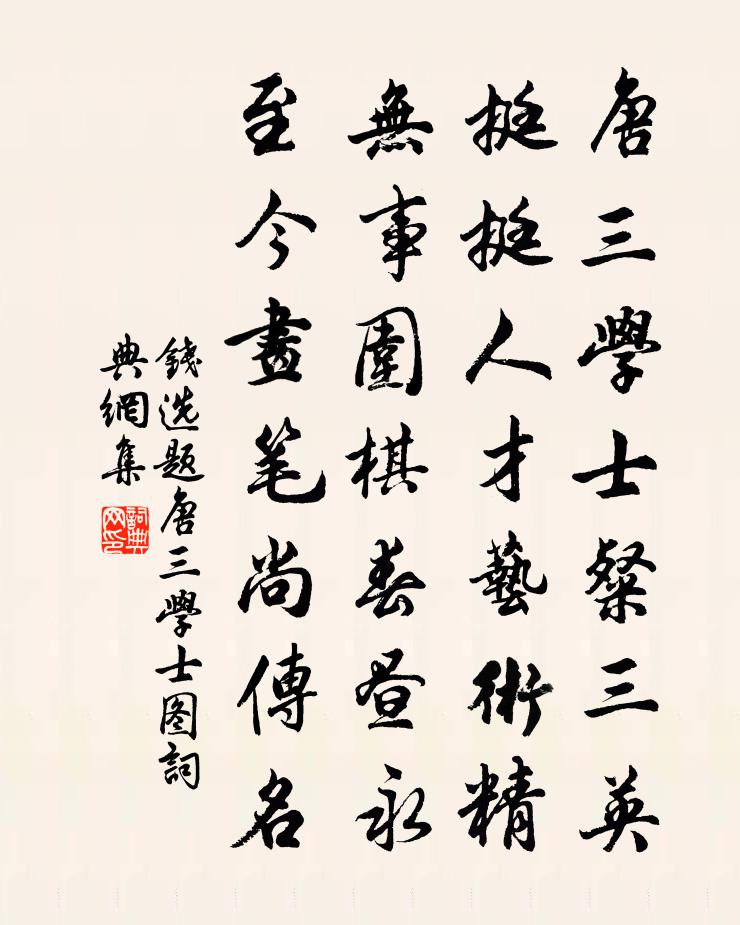 唐三學士粲三英
挺挺人才藝術精
無事圍棋春昼永
至今畫笔尚傳名
錢选題唐三學士图詞
典網集
詞典
网印